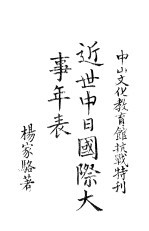 中山文化教育館抗戰特刊
近世中日國際大
事年表
楊家駱著